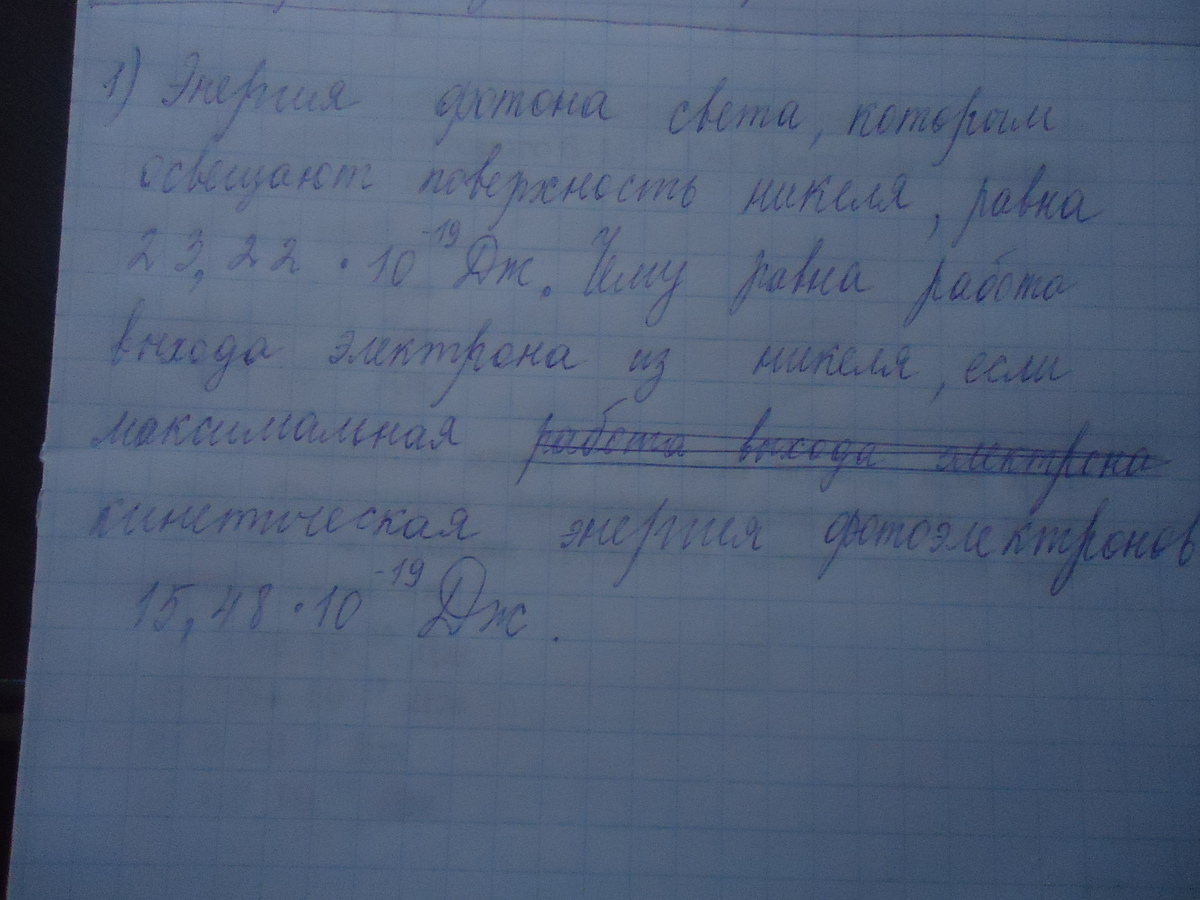 1) Энергия фотона света, которым
освещают поверхность никеля, равна
23,22 · 10⁻¹⁹ Дж. Чему равна работа
выхода электрона из никеля, если
максимальная работа выхода электрона
кинетическая энергия фотоэлектронов
15,48 · 10⁻¹⁹ Дж.